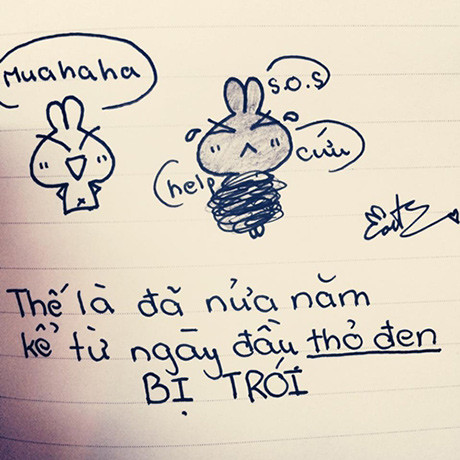 Muahaha
S.O.S
cứu
help
Thế là đã nửa năm
kể từ ngày đầu thỏ đen
BỊ TRÓI